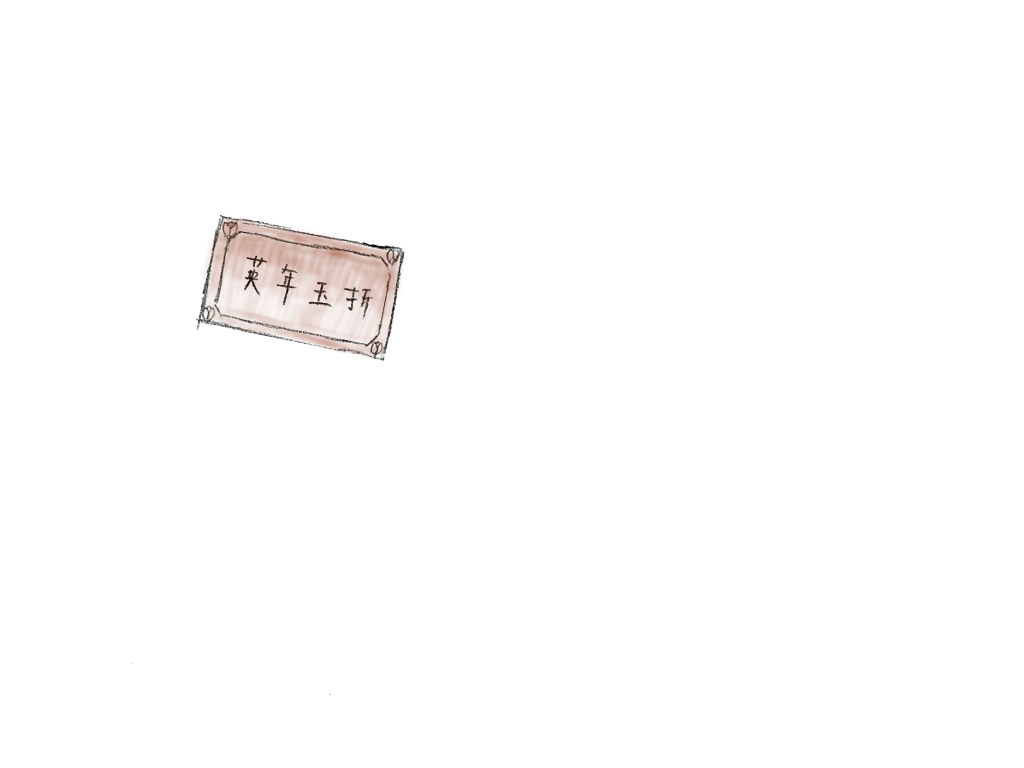 英年玉折